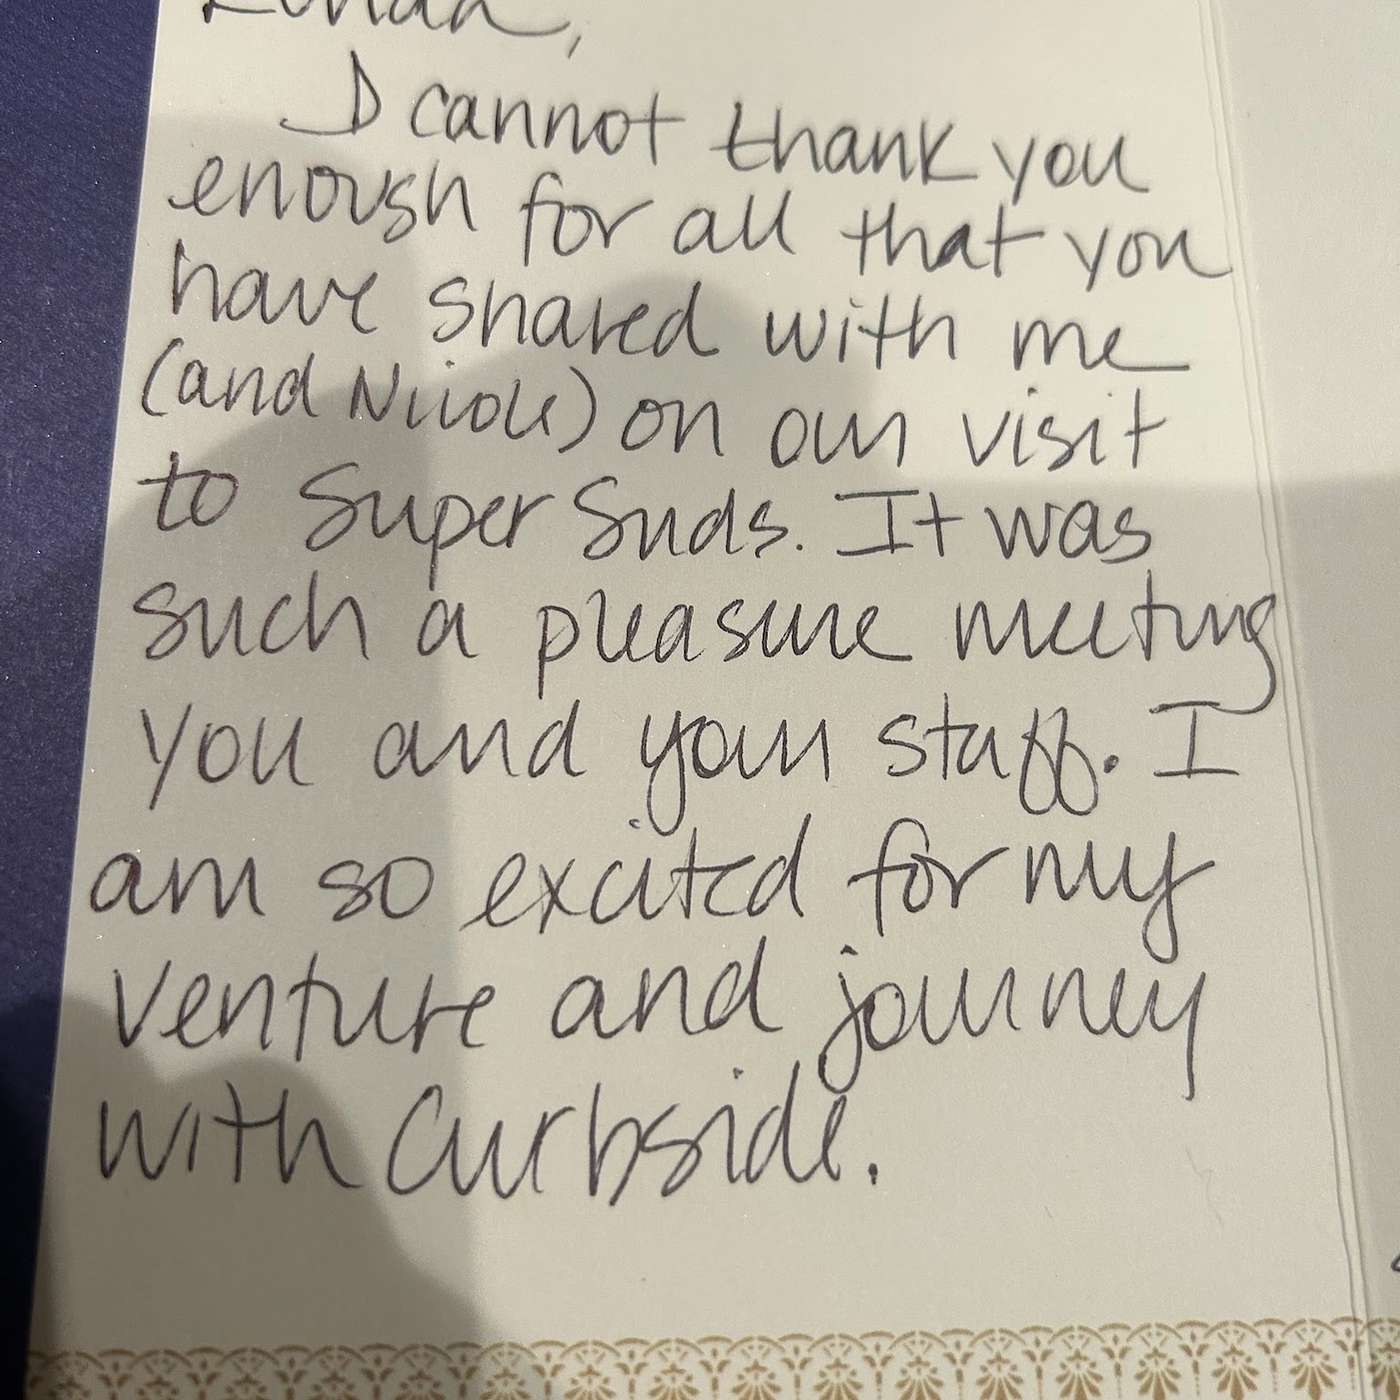 I cannot thank you
enough for all that you
have shared with me
(and Nicole) on our visit
to Super Suds. It was
such a pleasure meeting
you and your staff. I
am so excited for my
venture and journey
with Curbside.